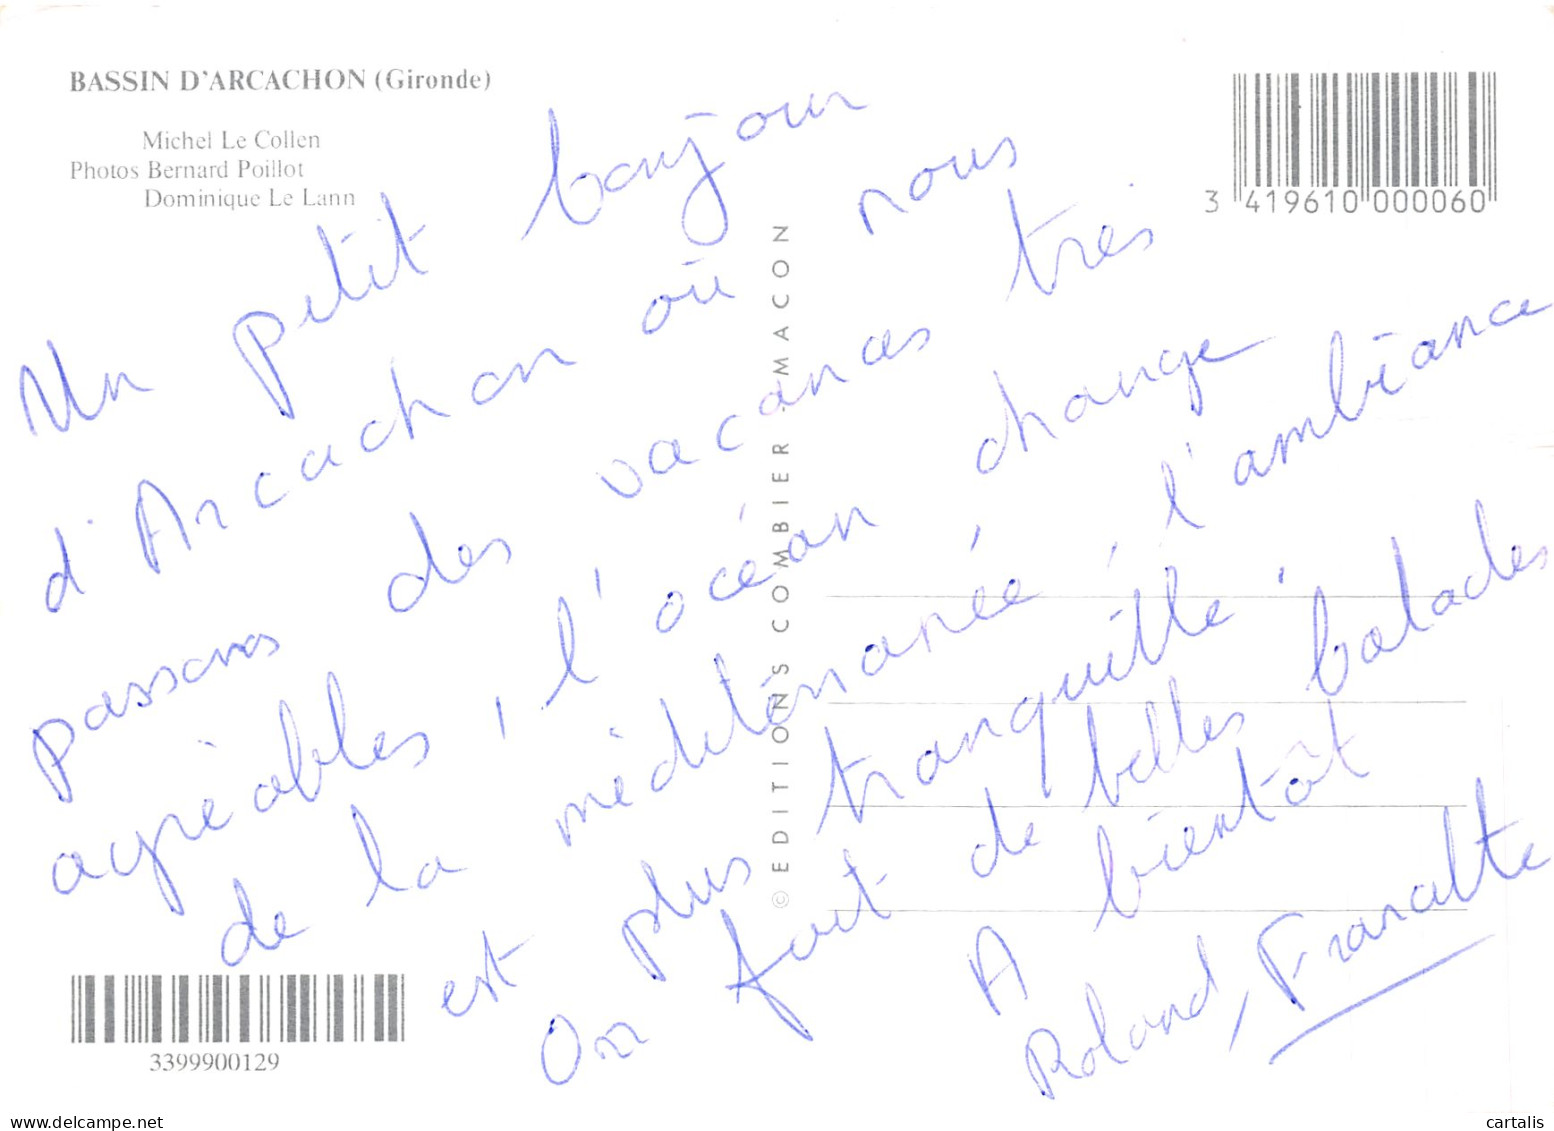 BASSIN D'ARCACHON (Gironde)
Michel Le Collen
Photos Bernard Poillot
Dominique Le Lann
3 419610 000060
Un petit bonjour
d'Arcachon où nous
passons des vacances très
agréables, l'océan change
de la méditéranée, l'ambiance
est plus tranquille,
On fait de belles balades
A bientôt
Roland, Francette
© EDITIONS COMBIER - MACON
3399900129
www.delcampe.net
cartalis